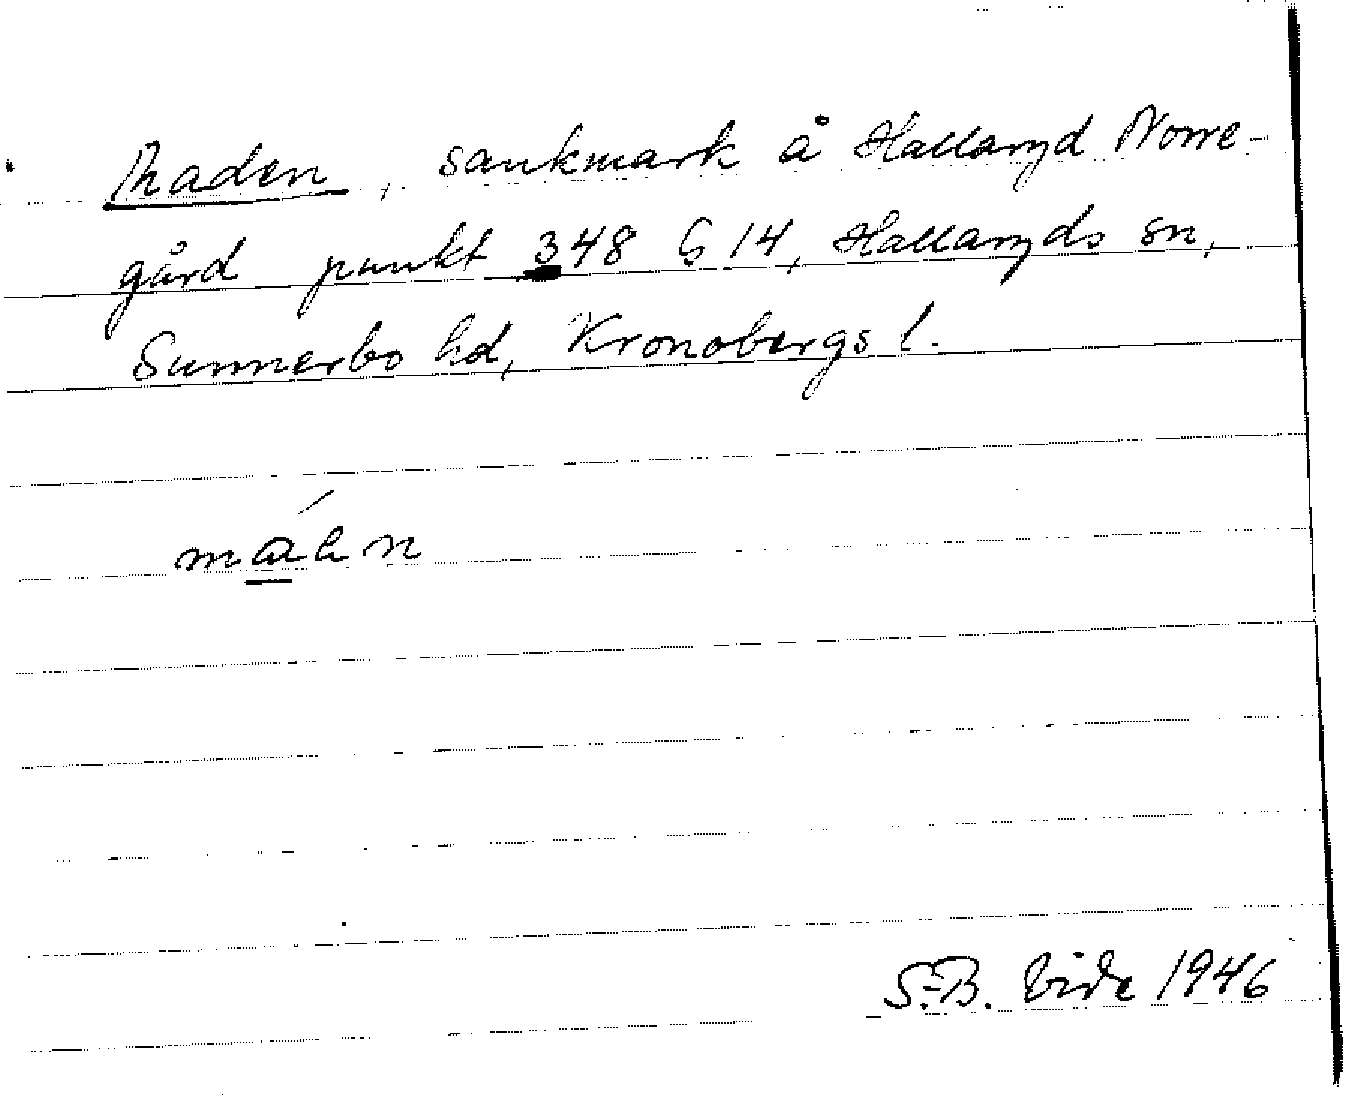 Maden, sankmark å Hallaryd Norre-
gård punkt 348 § 14, Hallaryds sn,
Sunnerbo hd, Kronobergs l.
S-B. Vide 1946